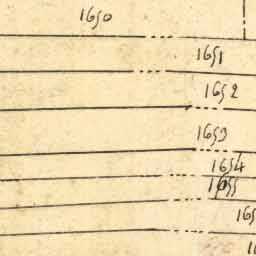 1650
1651
1652
1653
1654
1655